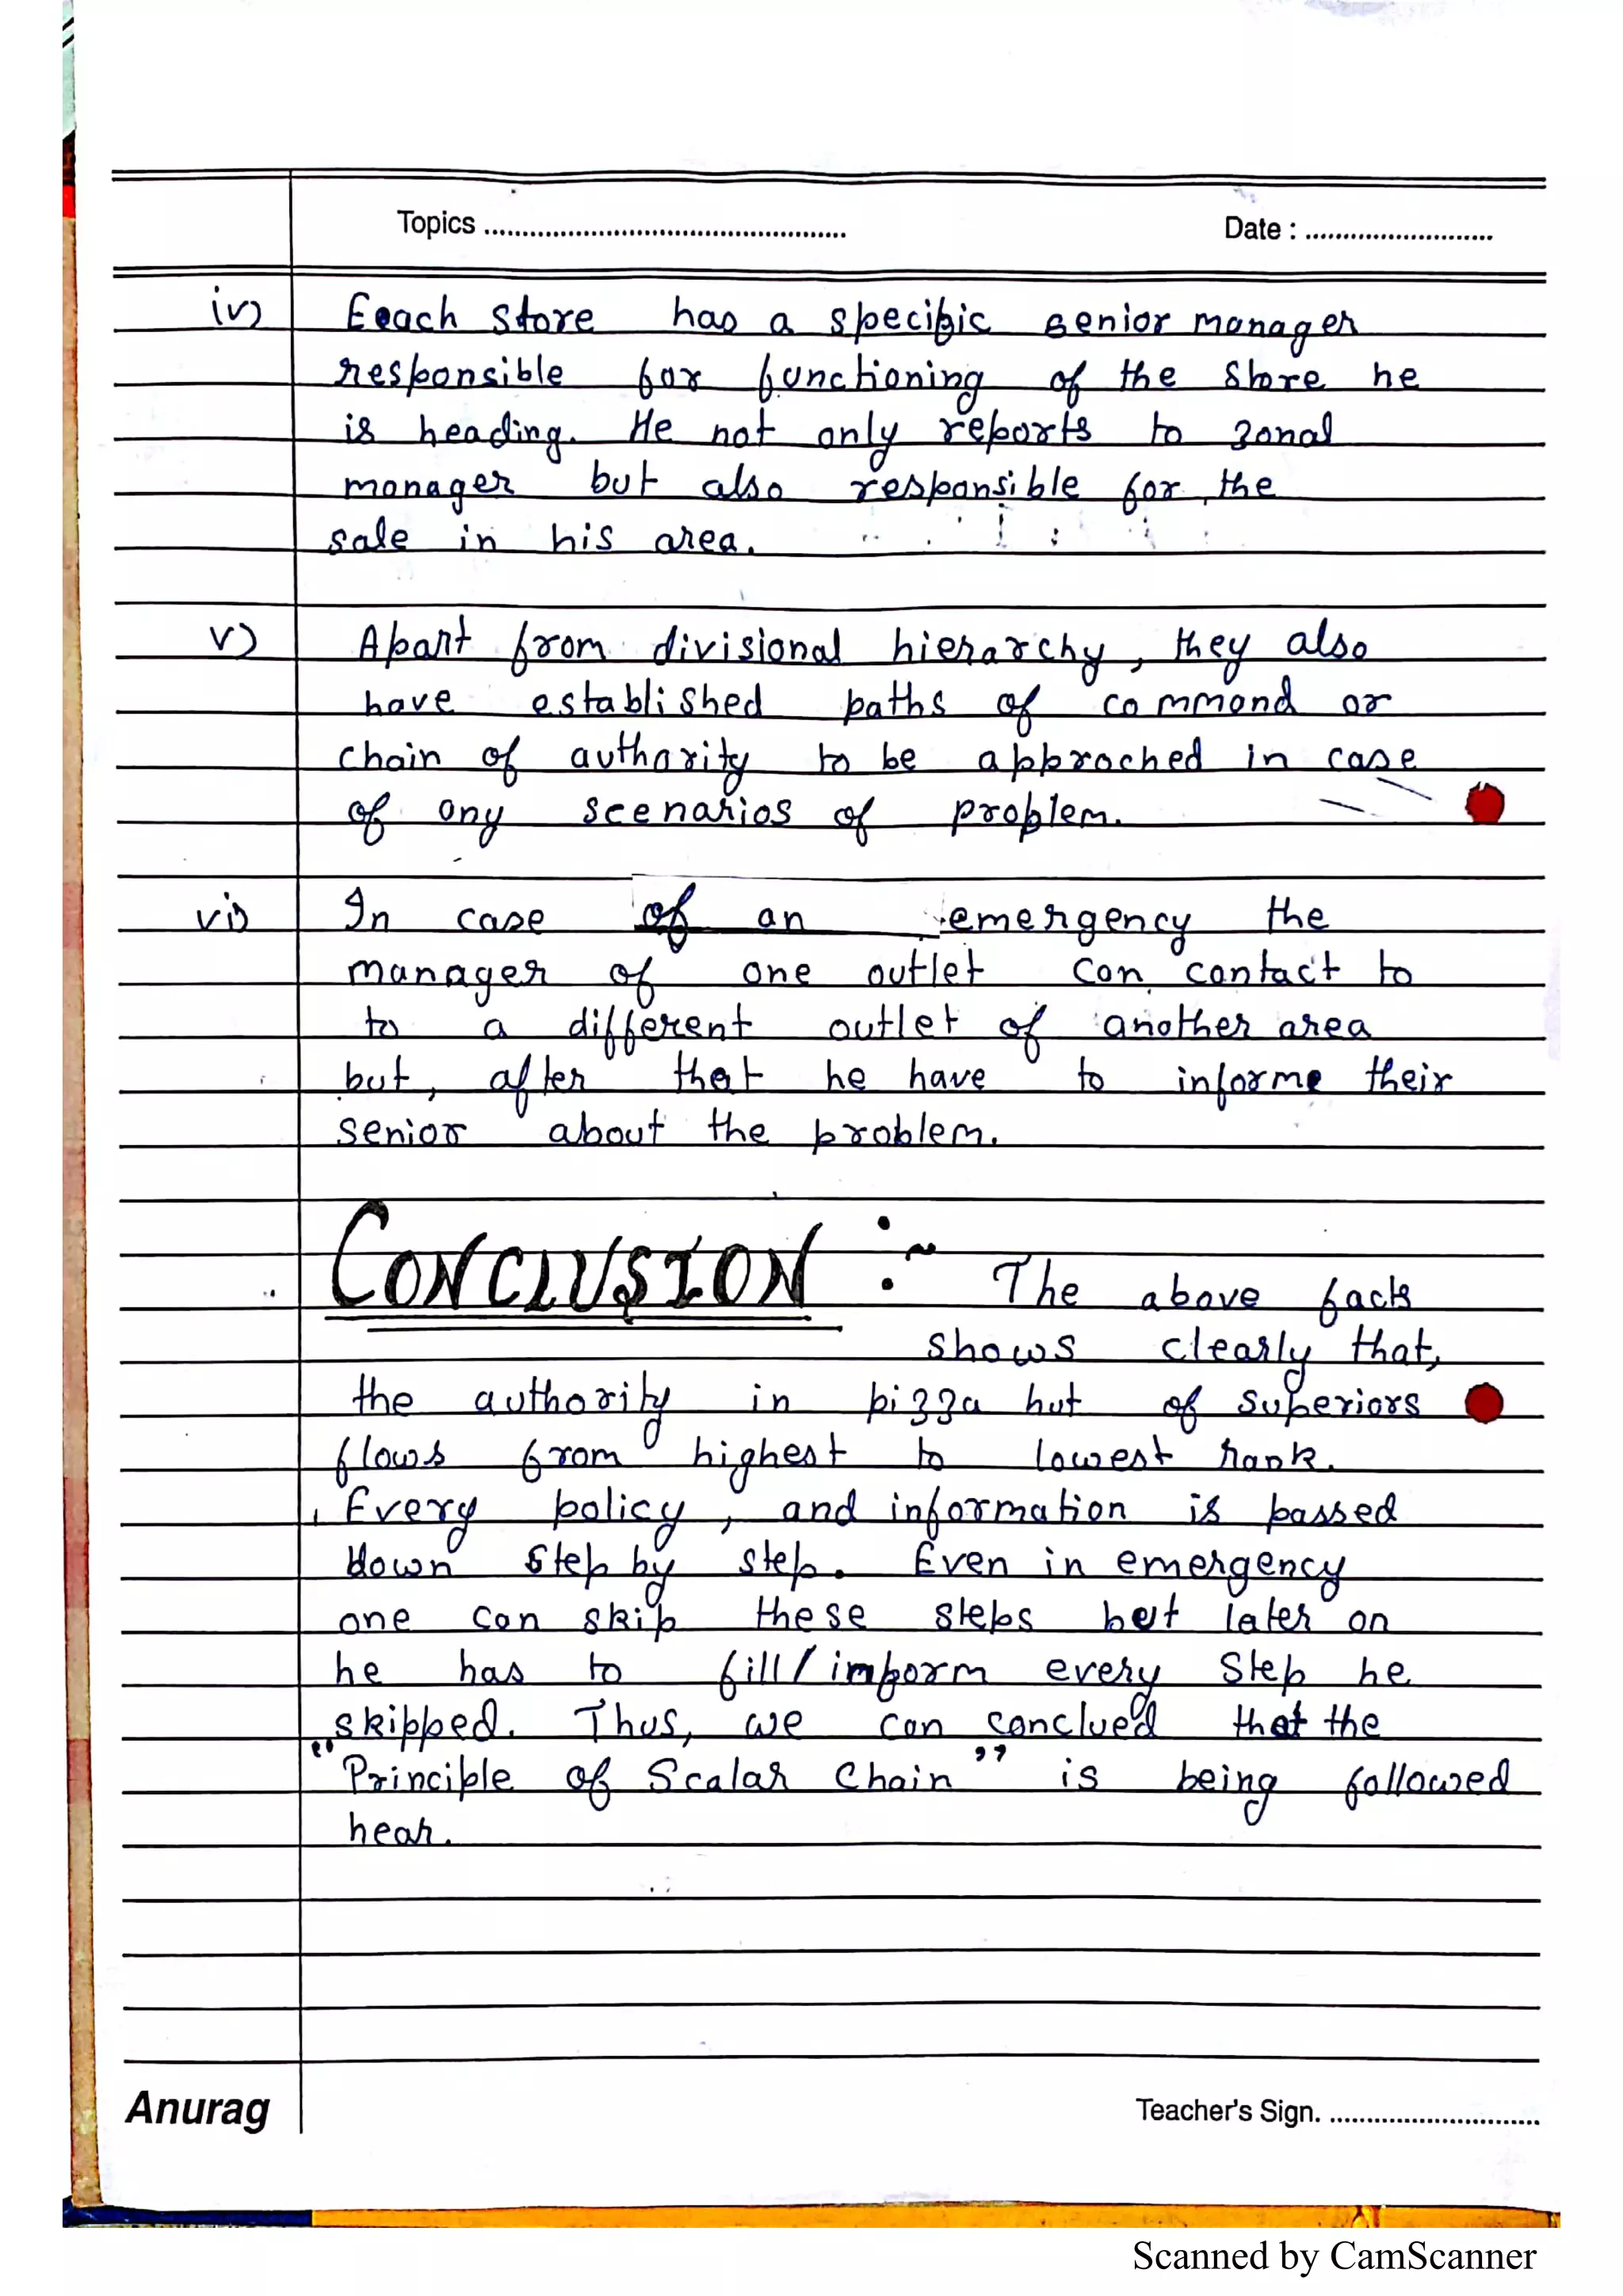 Topics ................................................ Date : .........................
iv) Eeach store has a specific senior manager
responsible for functioning of the store he
is heading. He not only reports to zonal
manager but also responsible for the
sale in his area.
v) Apart from divisional hierarchy, they also
have established paths of command or
chain of authority to be approched in case
of any scenarios of problem.
vi) In case of an emergency the
manager of one outlet can contact to
to a different outlet of another area
but, after that he have to informe their
senior about the problem.
CONCLUSION :~ The above facts
shows clearly that,
the authority in pizza hut of superiors
flows from highest to lowest rank.
Every policy, and information is passed
down step by step. Even in emergency
one can skip these steps but later on
he has to fill/imform every step he
skipped. Thus, we can conclued that the
"Principle of Scalar Chain" is being followed
hear.
Anurag Teacher's Sign. .............................
Scanned by CamScanner